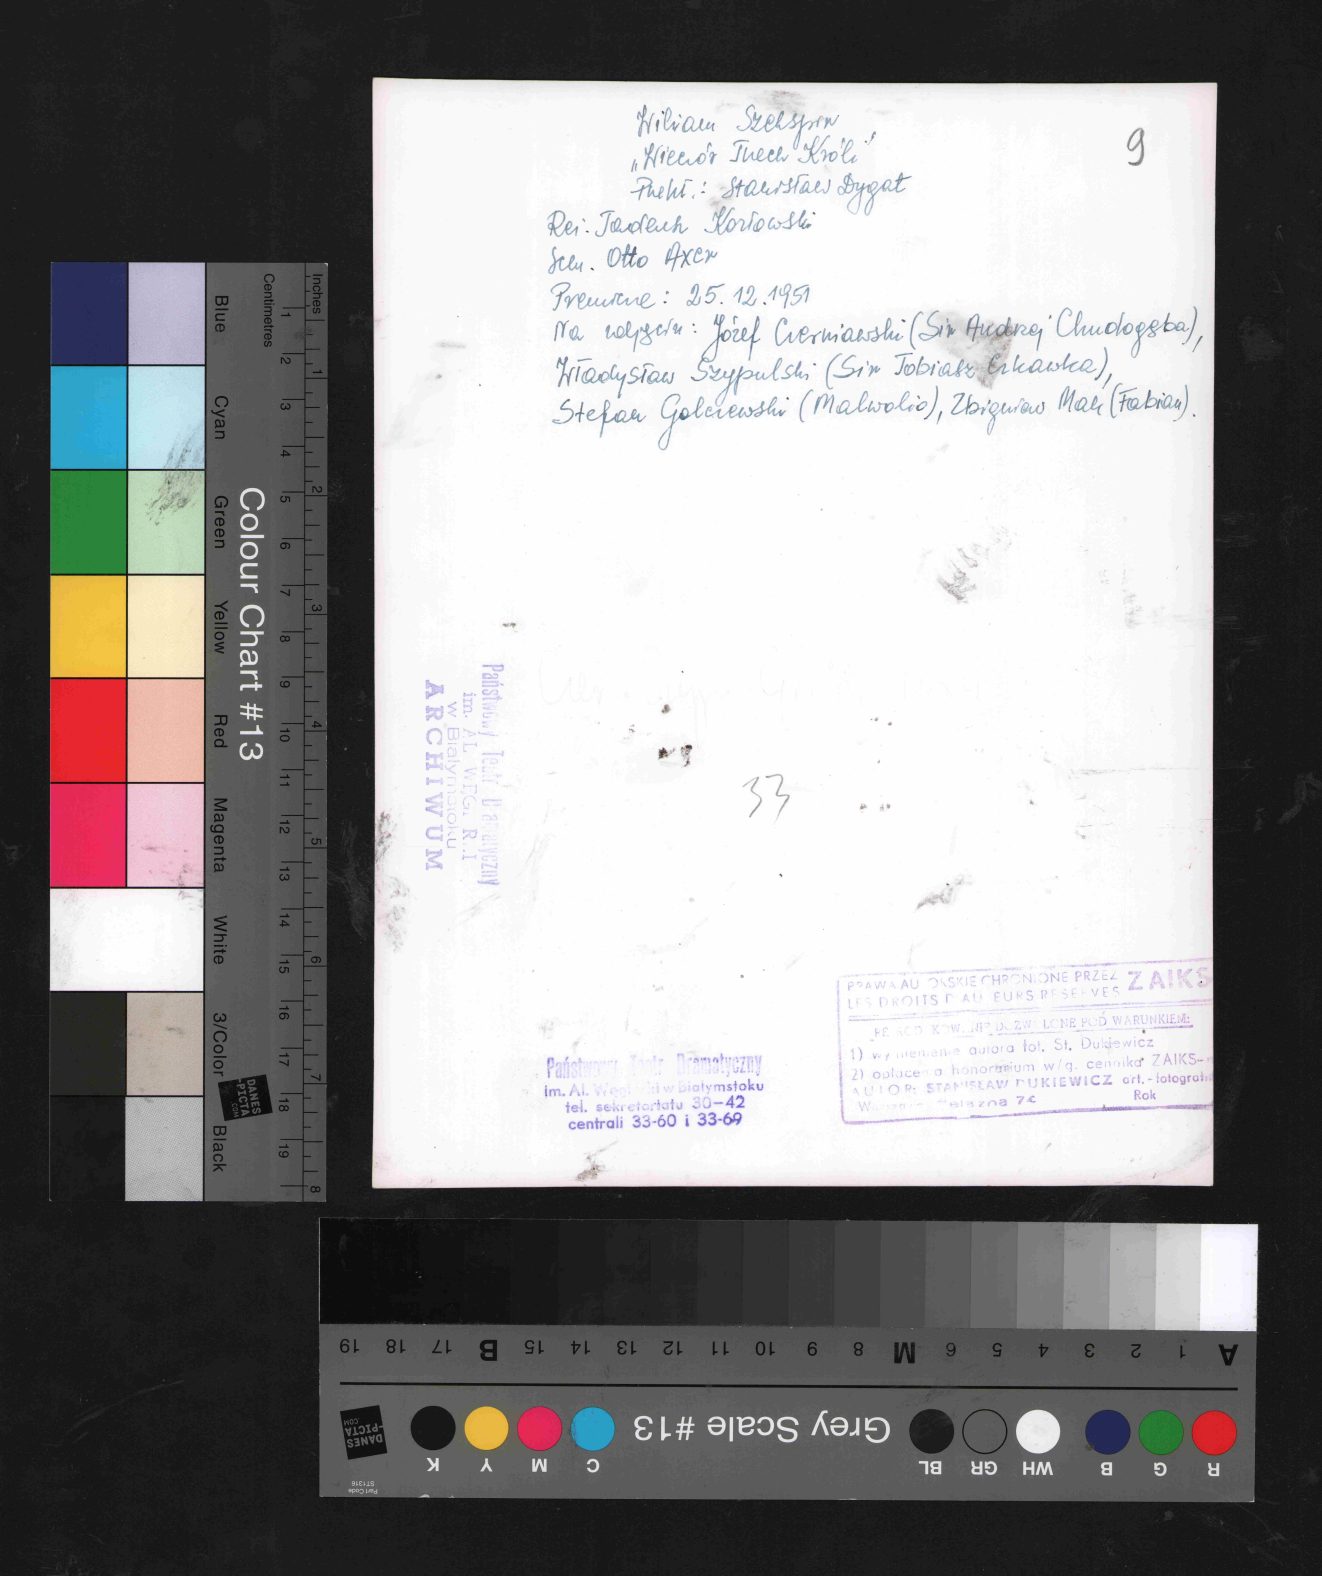 Wiliam Szekspir
„Wieczór Trzech Króli"
Przekł.: Stanisław Dygat
Reż: Tadeusz Kozłowski
Scen. Otto Axer
Premiera: 25.12.1951
Na zdjęciu: Józef Czerniawski (Sir Andrzej Chudogęba),
Władysław Szypulski (Sir Tobiasz Czkawka),
Stefan Golczewski (Malwolio), Zbigniew Mak (Fabian).
9
33
Państwowy Teatr Dramatyczny
im. AL. WĘG
w Białymstoku
ARCHIWUM
Państwowy Teatr Dramatyczny
im. Al. Węgierki w Białymstoku
tel. sekretariatu 30-42
centrali 33-60 i 33-69
PRAWA AUTORSKIE CHRONIONE PRZEZ ZAIKS
LES DROITS D'AUTEURS RESERVES
DOZWOLONE POD WARUNKIEM:
1) wymienienie autora fot. St. Dukiewicz
2) opłacenia honorarium w/g. cennika ZAIKS-
AUTOR: STANISŁAW DUKIEWICZ art.-fotografik
Żelazna Rok
Colour Chart #13
Blue
Cyan
Green
Yellow
Red
Magenta
White
3/Color
Black
Centimetres
Inches
1 2 3 4 5 6 7 8 9 10 11 12 13 14 15 16 17 18 19
1 2 3 4 5 6 7 8
DANES
-PICTA
.COM
Grey Scale #13
A 1 2 3 4 5 6 M 8 9 10 11 12 13 14 15 B 17 18 19
R G B WH GR BL
C M Y K
DANES
-PICTA
.COM
Part Code
ST1316